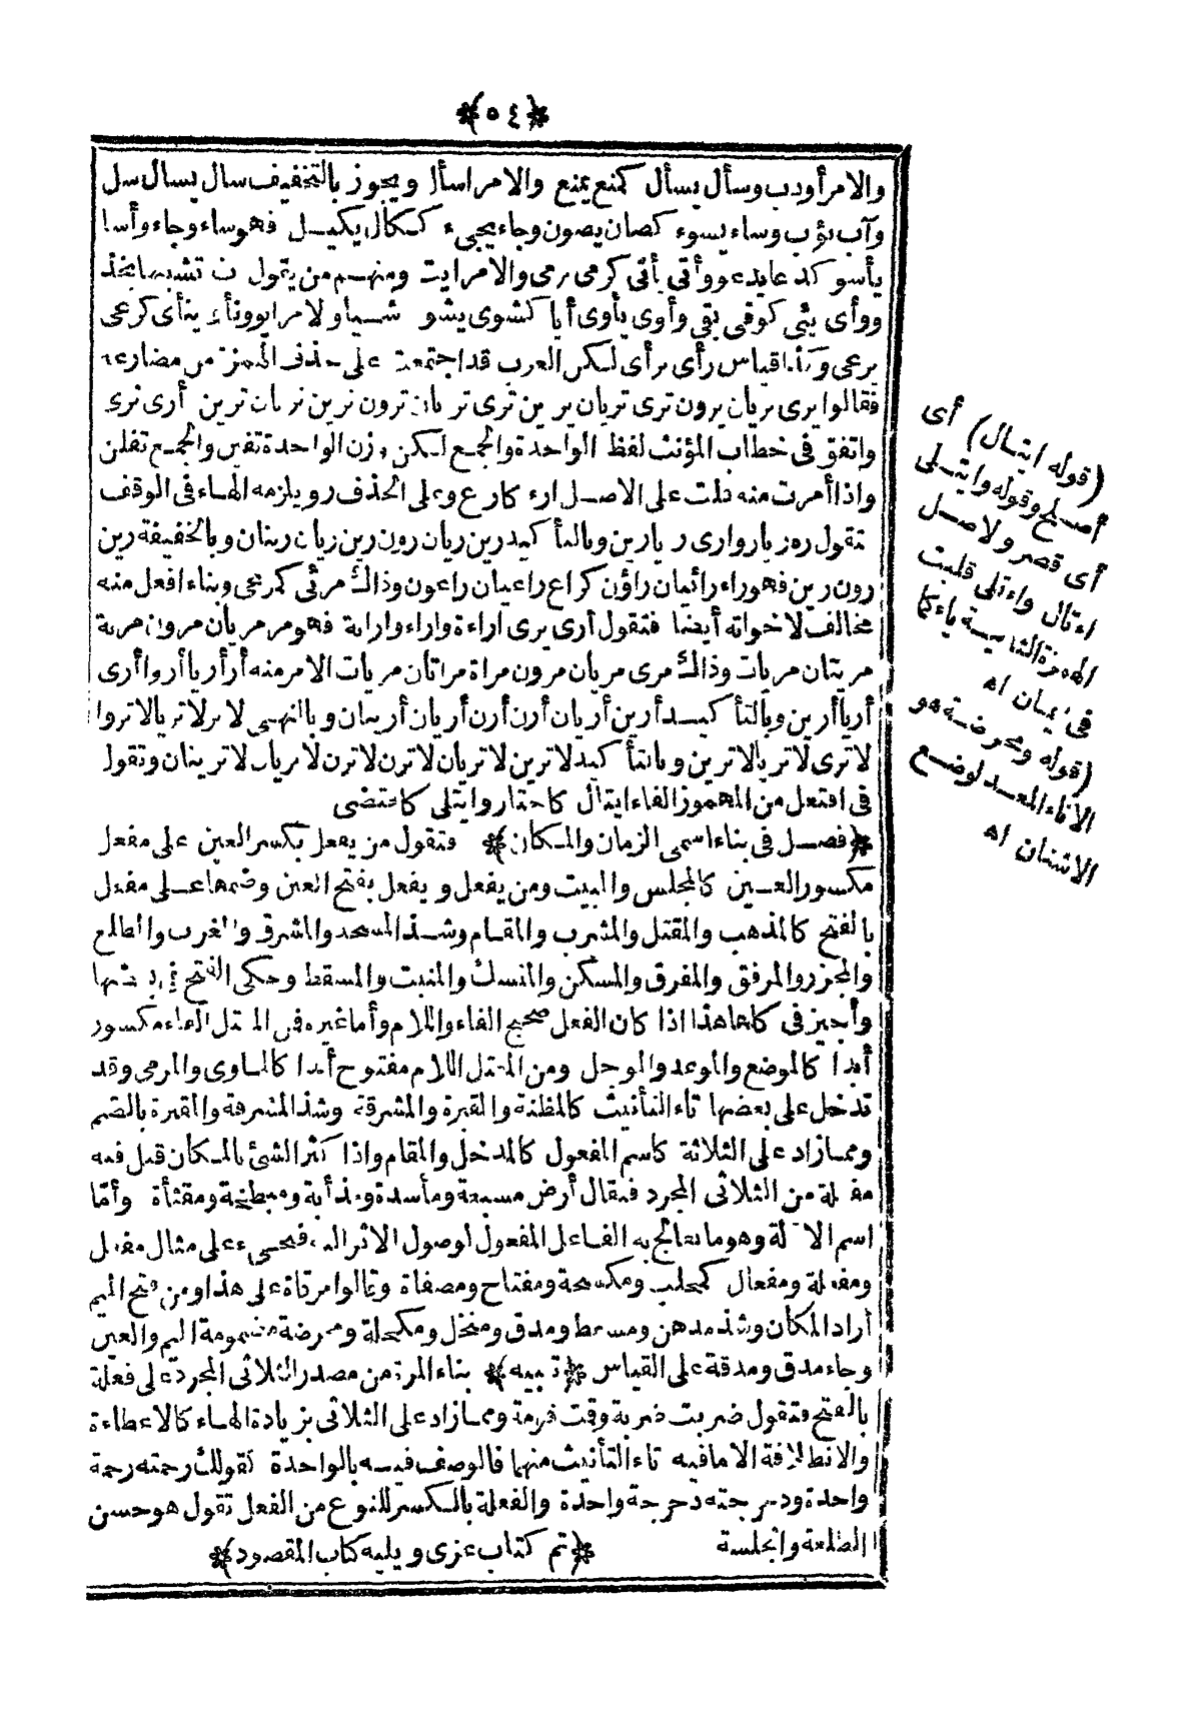 ﴿٥٤﴾
والامر أودب وسأل يسأل كمنع يمنع والامر اسأل ويجوز بالتخفيف سال يسال سل
وآب يؤب وساء يسوء كصان يصون وجاء يجىء ككال يكيل فهو ساء وجاء وأسا
يأسو كدعا يدعو وأتى يأتى كرمى يرمى والامر ايت ومنهم من يقول ت تشبيها بخذ
ووأى يئى كوقى يقى وأوى يأوى أيا كشوى يشوى شيا والامر ايو ونأى ينأى كرعى
يرعى وكذا قياس رأى يرأى لكن العرب قد اجتمعت على حذف الهمزة من مضارعه
فقالوا يرى يريان يرون ترى تريان يرين ترى تريان ترون ترين تريان ترين أرى نرى
واتفق فى خطاب المؤنث لفظ الواحدة والجمع لكن وزن الواحدة تفين والجمع تفلن
واذا أمرت منه قلت على الاصل ارء كارع وعلى الحذف ر ويلزمه الهاء فى الوقف
تقول ره ريا روا رى ريا رين وبالتأكيد رين ريان رون رين ريان رينان وبالخفيفة رين
رون رين فهو راء رائيان راؤن كراع راعيان راعون وذاك مرئى كمرعى وبناء افعل منه
مخالف لاخواته أيضا فتقول أرى يرى اراءة واراء واراية فهو مر مريان مرون مرية
مريتان مريات وذاك مرى مريان مرون مراة مراتان مريات الامر منه أر أريا أروا أرى
أريا أرين وبالتأكيد أرين أريان أرن أرن أريان أرينان وبالنهى لا تر لا تريا لا تروا
لا ترى لا تريا لا ترين وبالتأكيد لا ترين لا تريان لا ترن لا ترن لا تريان لا ترينان وتقول
فى افتعل من المهموز الفاء ايتال كاختار وايتلى كاقتضى
﴿فصل فى بناء اسمى الزمان والمكان﴾ فتقول من يفعل بكسر العين على مفعل
مكسور العين كالمجلس والمبيت ومن يفعل ويفعل بفتح العين وضمها على مفعل
بالفتح كالمذهب والمقتل والمشرب والمقام وشذ المسجد والمشرق والمغرب والمطلع
والمجزر والمرفق والمفرق والمسكن والمنسك والمنبت والمسقط وحكى الفتح فى بعضها
وأجيز فى كلها هذا اذا كان الفعل صحيح الفاء واللام وأما غيره فمن المعتل الفاء مكسور
أبدا كالموضع والموعد والموجل ومن المعتل اللام مفتوح أبدا كالماوى والمرمى وقد
تدخل على بعضها تاء التأنيث كالمظنة والمقبرة والمشرقة وشذ المشرقة والمقبرة بالضم
ومما زاد على الثلاثة كاسم المفعول كالمدخل والمقام واذا كثر الشئ بالمكان قيل فيه
مفعلة من الثلاثى المجرد فيقال أرض مسبعة ومأسدة ومذأبة ومبطخة ومقثأة وأمّا
اسم الالة وهو ما يعالج به الفاعل المفعول لوصول الاثر اليه فيجىء على مثال مفعل
ومفعلة ومفعال كمحلب ومكسحة ومفتاح ومصفاة وقالوا مرقاة على هذا ومن فتح الميم
أراد المكان وشذ مدهن ومسعط ومدق ومنخل ومكحلة ومحرضة مضمومة الميم والعين
وجاء مدق ومدقة على القياس ﴿تنبيه﴾ بناء المرة من مصدر الثلاثى المجرد على فعلة
بالفتح فتقول ضربت ضربة وقمت قومة ومما زاد على الثلاثى بزيادة الهاء كالاعطاءة
والانطلاقة الا ما فيه تاء التأنيث منهما فالوصف فيه بالواحدة كقولك رحمته رحمة
واحدة ودحرجته دحرجة واحدة والفعلة بالكسر للنوع من الفعل تقول هو حسن
الطعمة والجلسة ﴿تم كتاب عزى ويليه كتاب المقصود﴾
(قوله ايتال) أى
أصلح وقوله وايتلى
أى قصر والاصل
اءتال واءتلى قلبت
الهمزة الثانية ياء كما
فى ايمان اه
(قوله ومحرضة هو
الاناء المعد لوضع
الاشنان اه